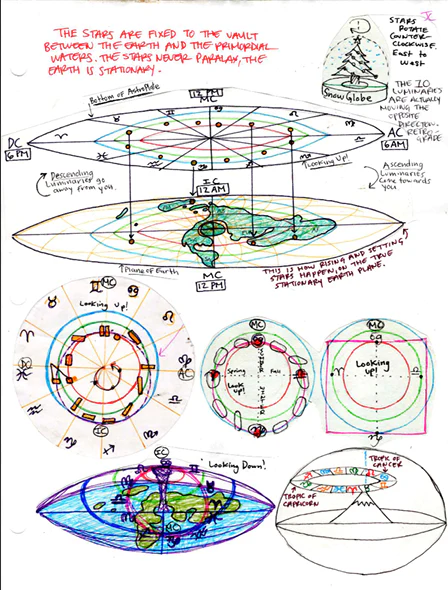 THE STARS ARE FIXED TO THE VAULT
BETWEEN THE EARTH AND THE PRIMORDIAL
WATERS. THE STARS NEVER PARALAX, THE
EARTH IS STATIONARY.
STARS
ROTATE
COUNTER-
CLOCKWISE.
East to
West
SnowGlobe
THE 10
LUMINARIES
ARE ACTUALLY
MOVING THE
OPPOSITE
DIRECTION.
RETRO-
GRADE
12 PM
MC
Bottom of AstroPole
DC
6 PM
AC
6 AM
Looking Up!
Descending
Luminaries go
away from you.
Ascending
Luminaries
Come towards
you.
IC
12 AM
Plane of Earth
MC
12 PM
THIS IS HOW RISING AND SETTING
STARS HAPPEN, ON THE TRUE
STATIONARY EARTH PLANE.
MC
Looking up!
DC
AC
IC
MC
Spring
Fall
Look
Up!
SUMMER
WINTER
MC
Looking
up!
EC
Looking Down!
MC
TROPIC OF
CANCER
TROPIC OF
CAPRICORN